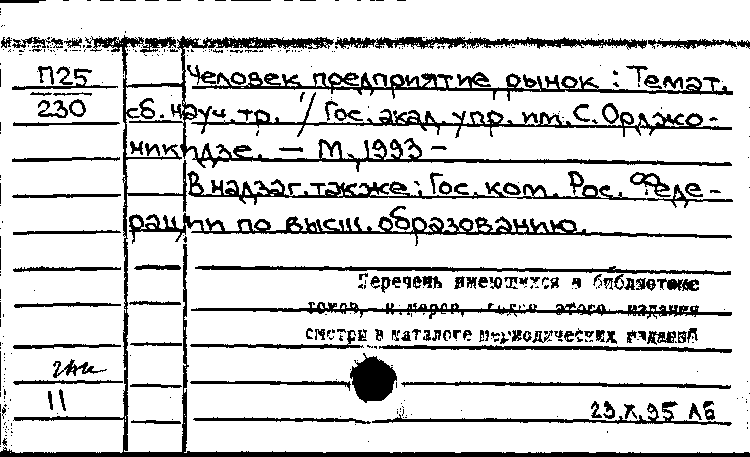 П25
230
Человек предприятие, рынок : Темат.
сб. науч. тр. / Гос. акад. упр. им. С. Орджо-
никидзе. — М., 1993 –
В надзаг. также: Гос. ком. Рос. Феде-
рации по высш. образованию.
Перечень имеющихся в библиотеке
томов, номеров, годов этого издания
смотри в каталоге периодических изданий
11
23.X.95 АБ